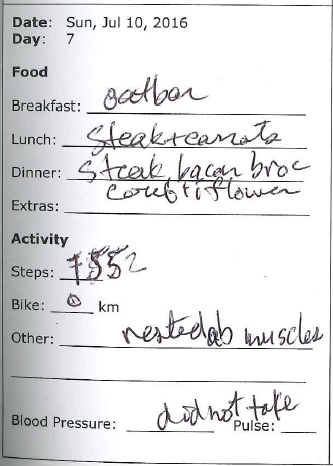 Date: Sun, Jul 10, 2016
Day: 7
Food
Breakfast: oatbar
Lunch: Steak + carrots
Dinner: Steak, bacon broc
Extras:
Activity
Steps: 7552
Bike: 0 km
Other: rested ab muscles
Blood Pressure: did not take Pulse: